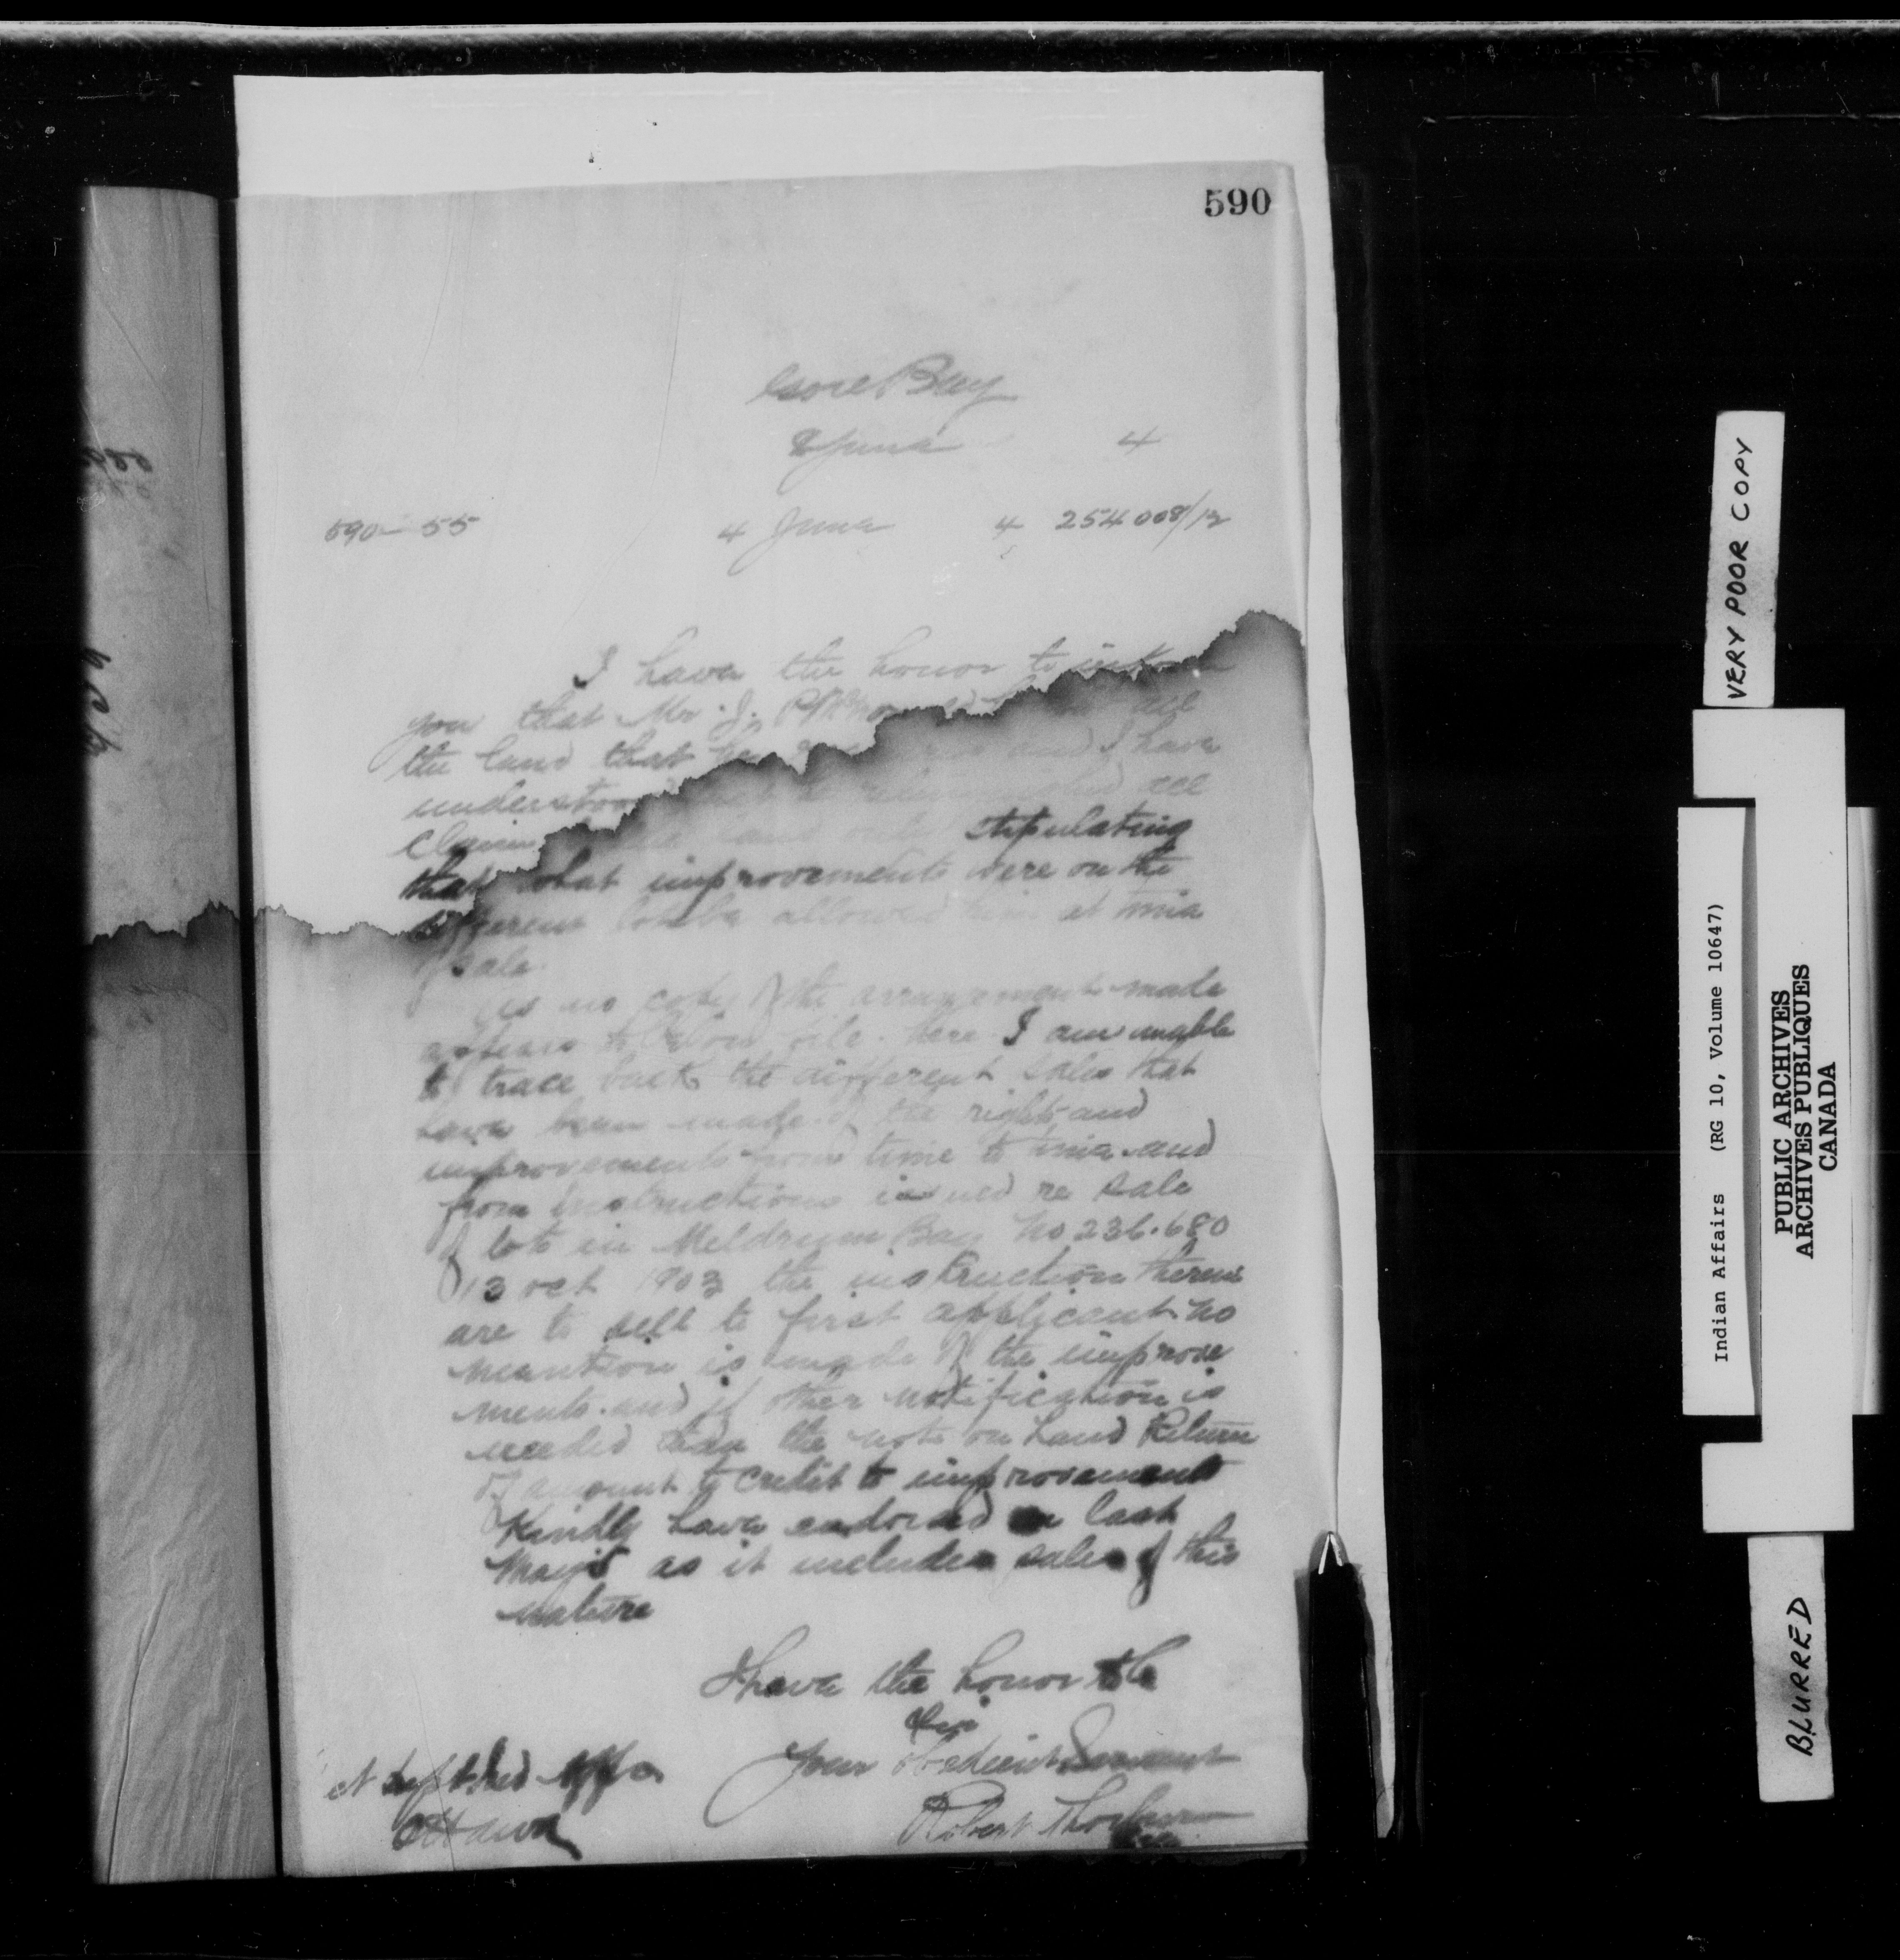 590
Gore Bay
8 June 4
590 - 55 4 June 4 254008/12
I have the honor to inform
you that Mr. J. all
the land that he and I have
understood relinquished all
claim land only stipulating
that what improvements were on the
different lots be allowed him at time
of sale.
As no copy of the arrangement made
appears to be on file here I am unable
to trace back the different sales that
have been made of the right and
improvements from time to time and
from instructions issued re sale
of lots in Meldrum Bay No 236.680
13 Oct 1903 the instruction therein
are to sell to first applicant no
mention is made of the improve
ments. and if other notification is
needed than the note on Land Return
of amount to credit to improvements
Kindly have endorsed on last
as it includes sales of this
nature
I have the honor to be
Sir
Your obedient Servant
Robert Thorburn
Ottawa
VERY POOR COPY
Indian Affairs (RG 10, Volume 10647)
PUBLIC ARCHIVES
ARCHIVES PUBLIQUES
CANADA
BLURRED